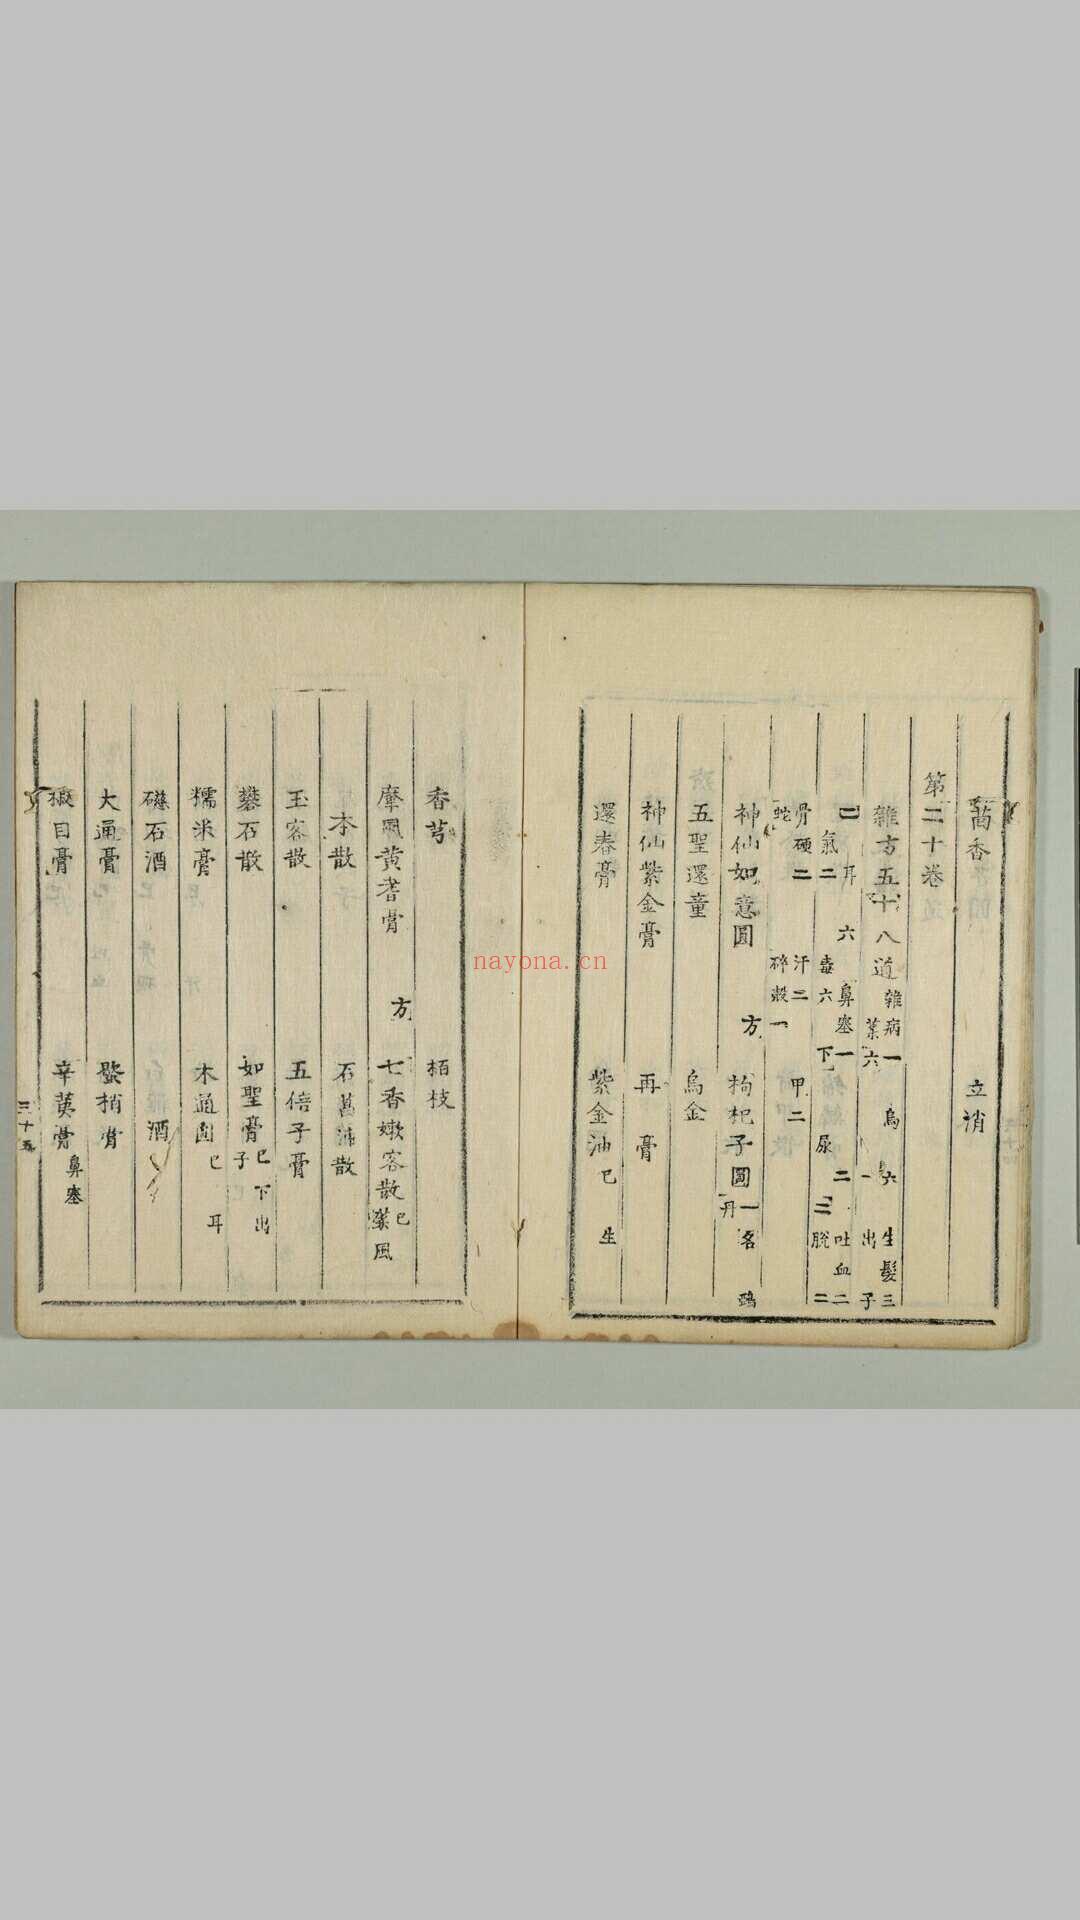 茴香 立消
第二十卷
雜方五十八道 雜病一 烏 六 生髮三
葉六 一 出子
二 耳 六 鼻塞一 二 吐血二
氣二 毒六 下 尿 三 脫二
骨硬二 汗二 甲二
蛇 碎殼一
神仙如意圓 方 枸杞子圓 一名 丹
五聖還童 烏金
神仙紫金膏 再 膏
還春膏 紫金油 已 生
香芎 栢枝
摩風黃耆膏 方 七香嫩容散 已 葉風
本散 石菖沛散
玉容散 五倍子膏
礬石散 如聖膏 已 下出子
糯米膏 木通圓 已 耳
磁石酒 酒
大通膏 膏
椒目膏 辛荑膏 鼻塞
三十五
nayona.cn